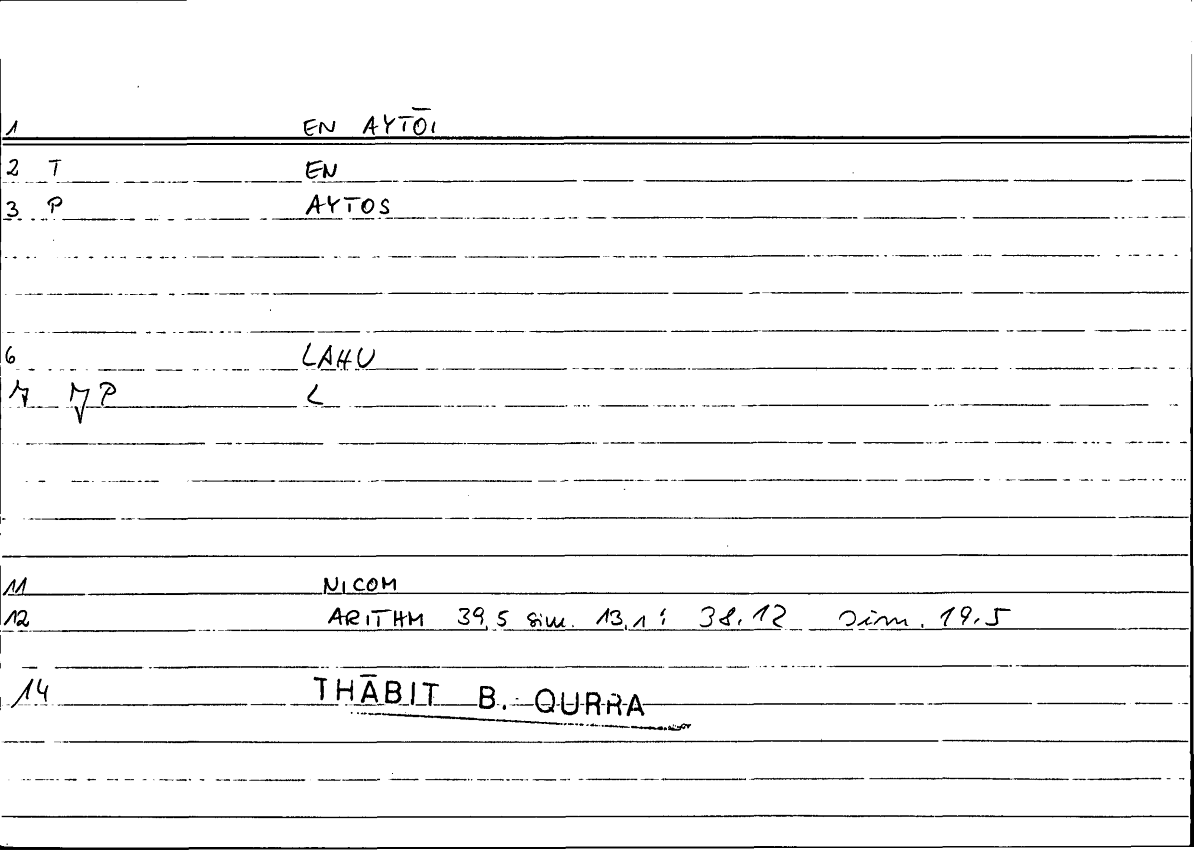 1 EN AYTŌI
2 T EN
3 P AYTOS
6 LAHU
7 P L
11 NICOM
12 ARITHM 39,5 sim. 13,1; 38.12 sim. 19.5
14 THĀBIT B. QURRA